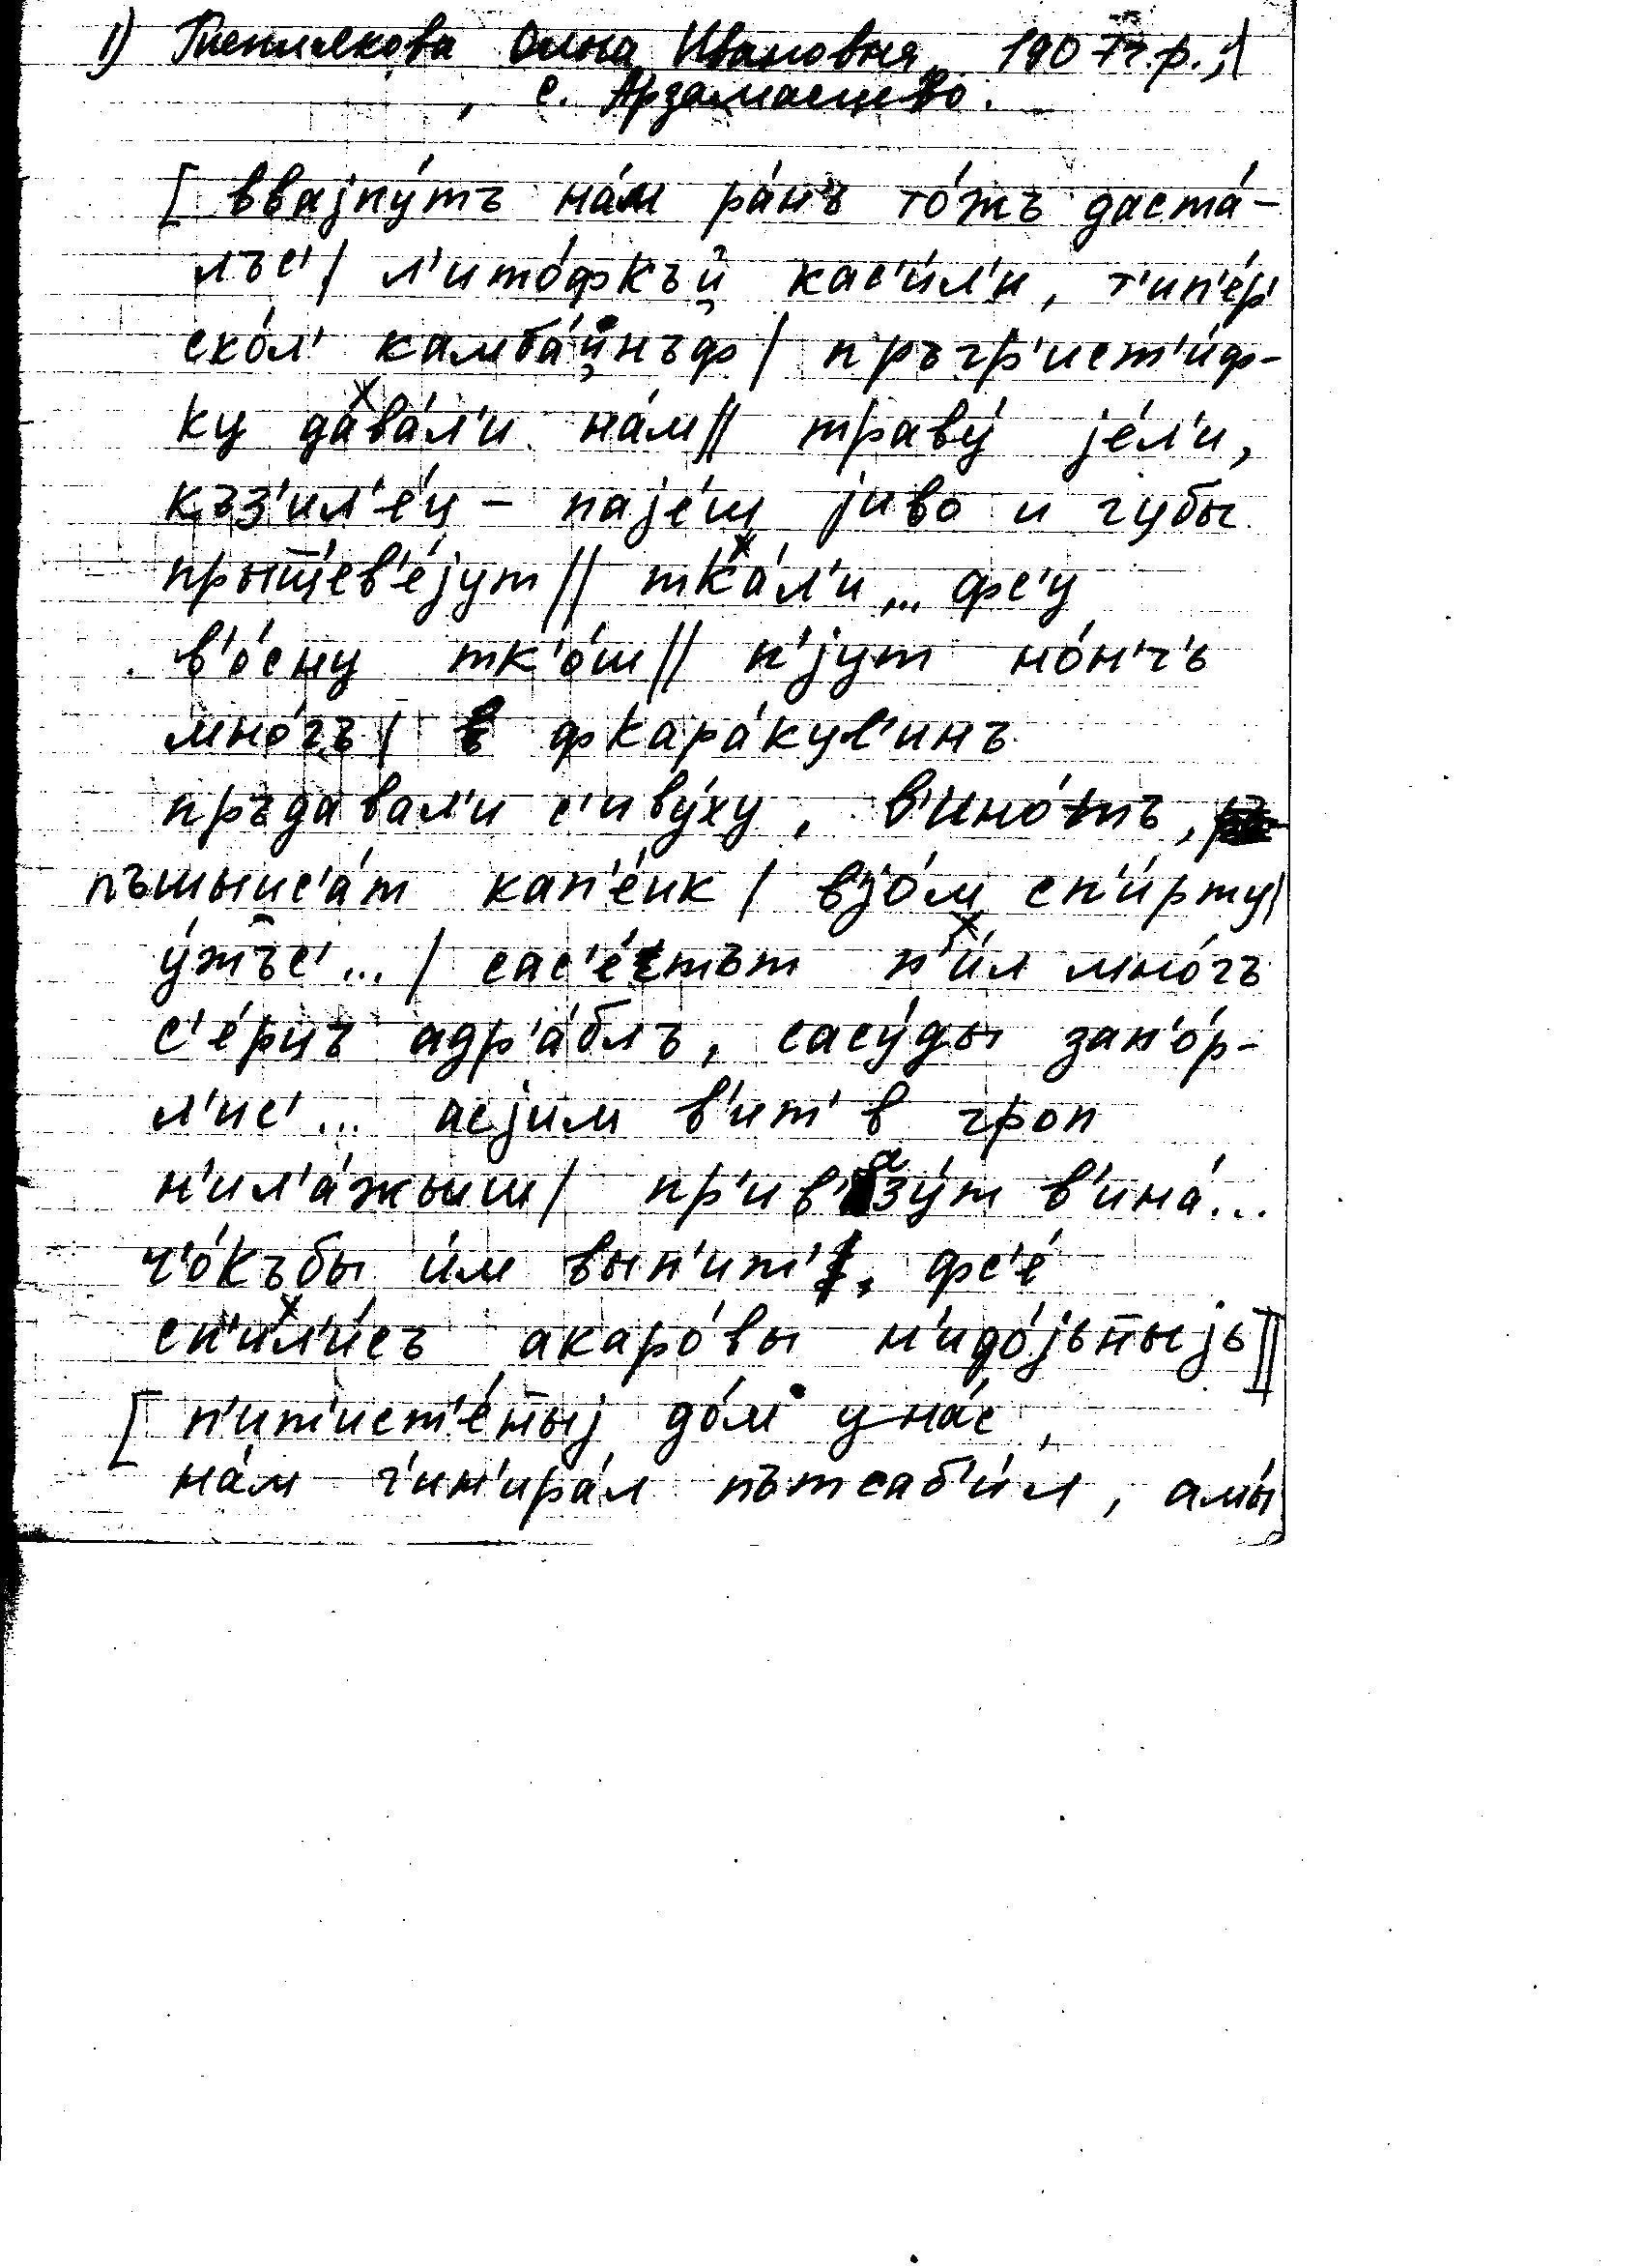 1) Теплякова Ольга Ивановна, 1907 г.р.,
с. Арзамасцево.
[ ввајпу́тъ на́м ра́нъ то́жъ даста́-
лъс'/ л'ито́фкъй кас'и́л'и, т'ип'е́р'
ско́л' камба́йнъф / пръгр'ист'и́ф-
ку дава́л'и на́м // траву́ је́л'и,
къз'ил'е́ц – паје́ш јиво и губы
прыщ̅ев'е́јут // тка́л'и ... фс'у
в'о́сну тк'о́ш // п'јут но́н'ч'ъ
мно́гъ / фкара́кул'инъ
пръдавал'и с'иву́ху, в'ино́тъ,
пъшыис'а́т кап'е́ик / вјо́м сп'и́рту/
у́жъс' ... / сас'е́тът п'и́л мно́гъ
с'е́рцъ адр'а́блъ, сасу́ды зап'о́р-
л'ис' ... асјим в'ит' в гроп
н'ил'а́жыш / пр'ив'азу́т в'ина́ ...
ч'о́къбы и́м вып'ит', фс'е́
сп'ил'и́съ акаро́вы н'идо́јьн̅ыјь //
[ п'ит'ист'е́н̅ыј до́м уна́с,
на́м г'ин'ира́л пътсаб'и́л, амы́